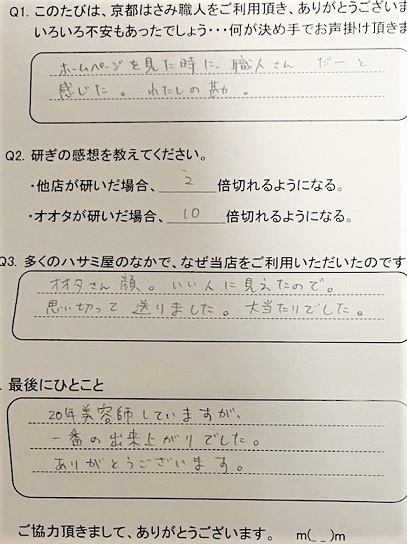 Q1. このたびは、京都はさみ職人をご利用頂き、ありがとうございま
いろいろ不安もあったでしょう・・・何が決め手でお声掛け頂きま
ホームページを見た時に、職人さん だーと
感じた。 わたしの勘。
Q2. 研ぎの感想を教えてください。
・他店が研いだ場合、 2 倍切れるようになる。
・オオタが研いだ場合、 10 倍切れるようになる。
Q3. 多くのハサミ屋のなかで、なぜ当店をご利用いただいたのです
オオタさん 顔。いい人に見えたので。
思い切って 送りました。 大当たりでした。
. 最後にひとこと
20年美容師していますが、
一番の出来上がりでした。
ありがとうございます。
ご協力頂きまして、ありがとうございます。 m(_ _)m